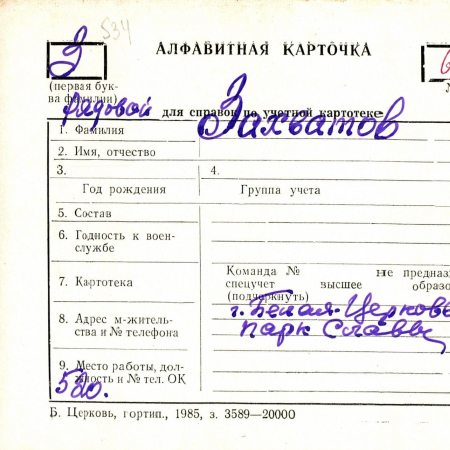 534
З
АЛФАВИТНАЯ КАРТОЧКА
(первая бук-
ва фамилии)
рядовой для справок по учетной картотеке
1. Фамилия Захватов
2. Имя, отчество
3. 4.
Год рождения Группа учета
5. Состав
6. Годность к воен-
службе
7. Картотека
Команда № не предназ
спецучет высшее образо
(подчеркнуть)
8. Адрес м-житель-
ства и № телефона
г. Белая-Церковь
парк Славы
9. Место работы, дол-
жность и № тел. ОК
Б. Церковь, гортип., 1985, з. 3589—20000